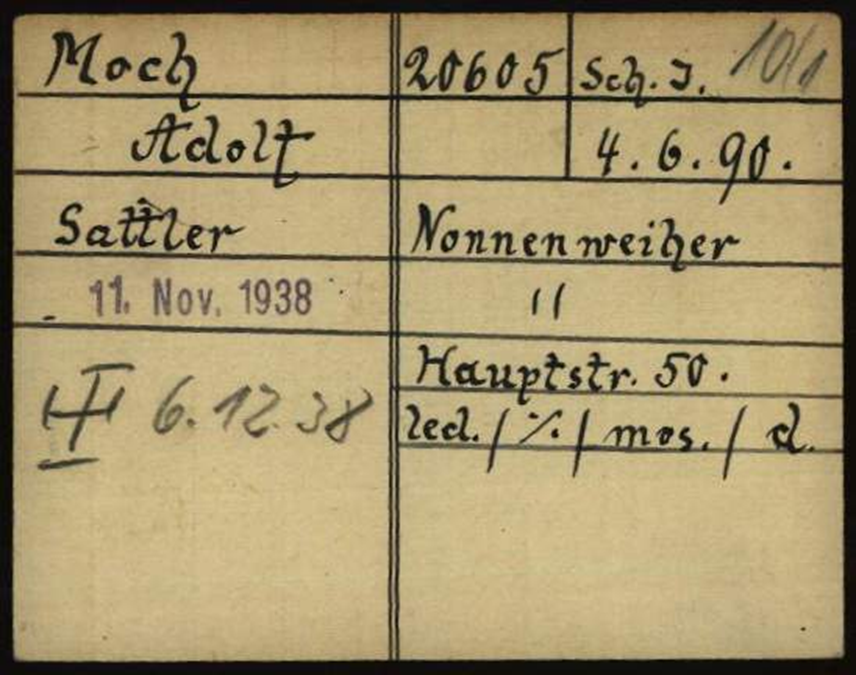 Moch 20605 Sch. J. 10/1
Adolf 4. 6. 90.
Sattler Nonnenweiher
11. Nov. 1938 "
Hauptstr. 50.
6.12.38
led. / ·/. / mos. / d.